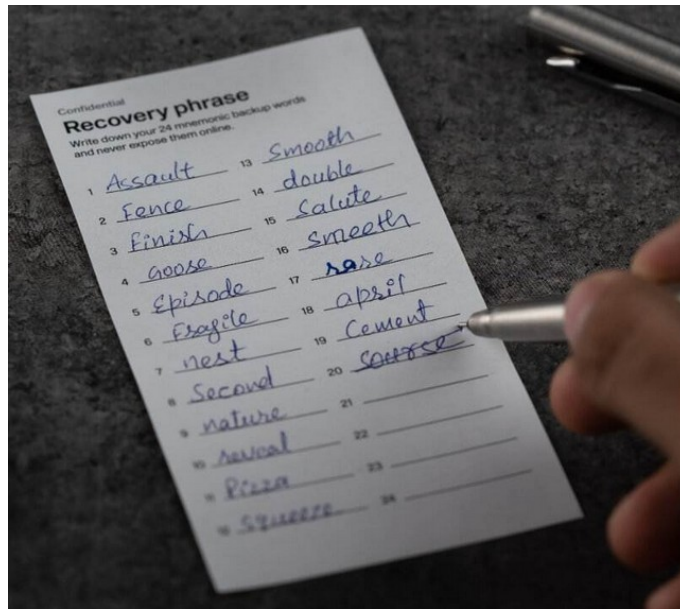 Confidential
Recovery phrase
Write down your 24 mnemonic backup words
and never expose them online.
1 Assault
2 Fence
3 Finish
4 Goose
5 Episode
6 Fragile
7 nest
8 Second
9 nature
10 reveal
11 Pizza
12 squeeze
13 Smooth
14 double
15 Salute
16
17
18 april
19 Cement
20
21
22
23
24